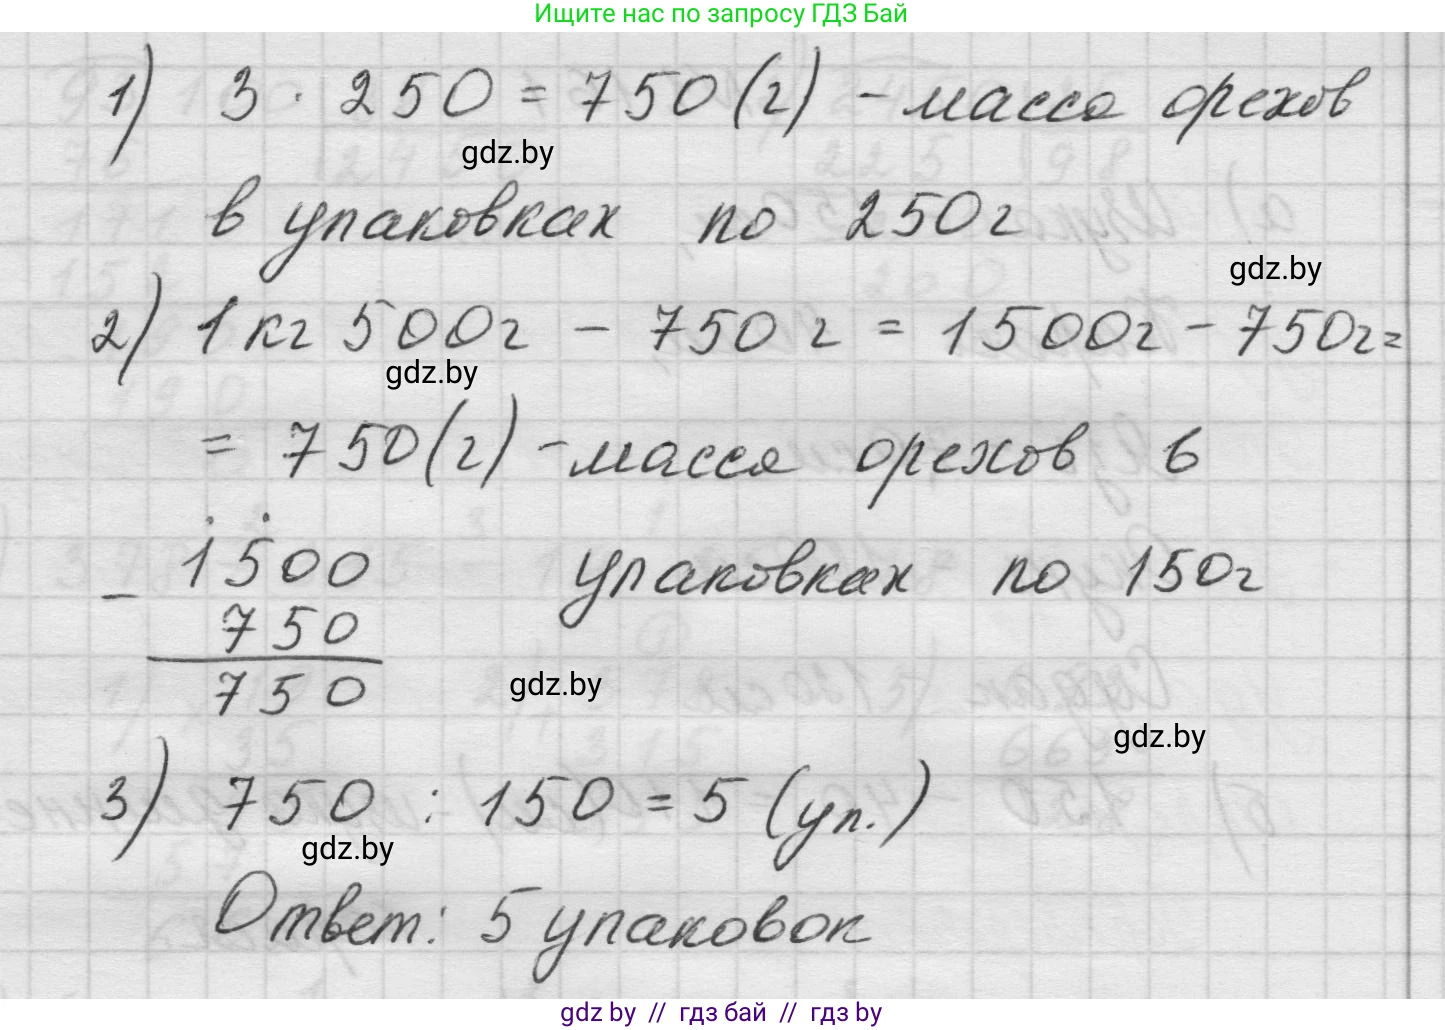 Ищите нас по запросу ГДЗ Бай
1) 3 · 250 = 750 (г) - масса орехов
gdz.by
в упаковках по 250г
gdz.by
2) 1 кг 500г - 750 г = 1500г - 750г =
gdz.by
= 750 (г) - масса орехов в
1500 упаковках по 150г
- 750
750
gdz.by
gdz.by
3) 750 : 150 = 5 (уп.)
gdz.by
Ответ: 5 упаковок
gdz by // гдз бай // gdz by